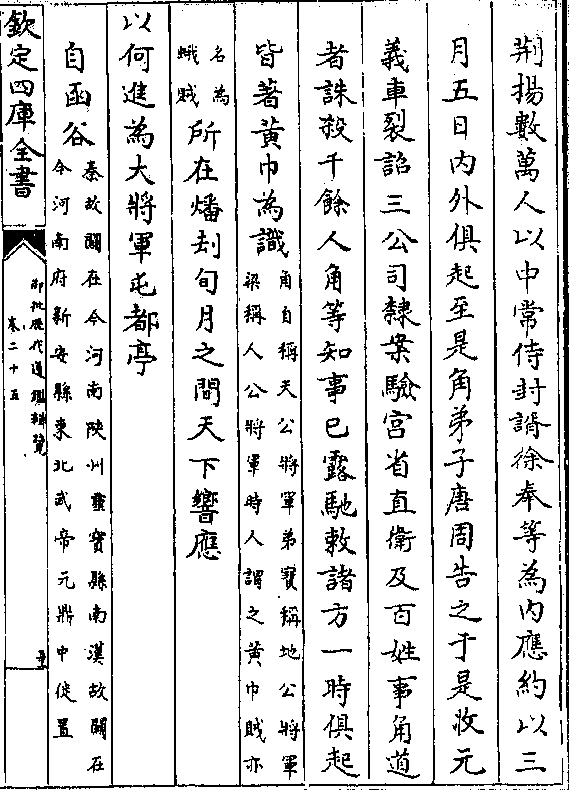 荆揚數萬人以中常侍封諝徐奉等為内應約以三
月五日内外俱起至是角弟子唐周告之于是收元
義車裂詔三公司隸案驗宫省直衛及百姓事角道
者誅殺千餘人角等知事已露馳敕諸方一時俱起
皆著黄巾為識
角自稱天公將軍弟寶稱地公將軍
梁稱人公將軍時人謂之黄巾賊亦
名為
蛾賊
所在燔刦旬月之間天下響應
以何進為大將軍屯都亭
自函谷
秦故關在今河南陜州靈寶縣南漢故關在
今河南府新安縣東北武帝元鼎中徙置
欽定四庫全書
御批歷代通鑑輯覽
卷二十五